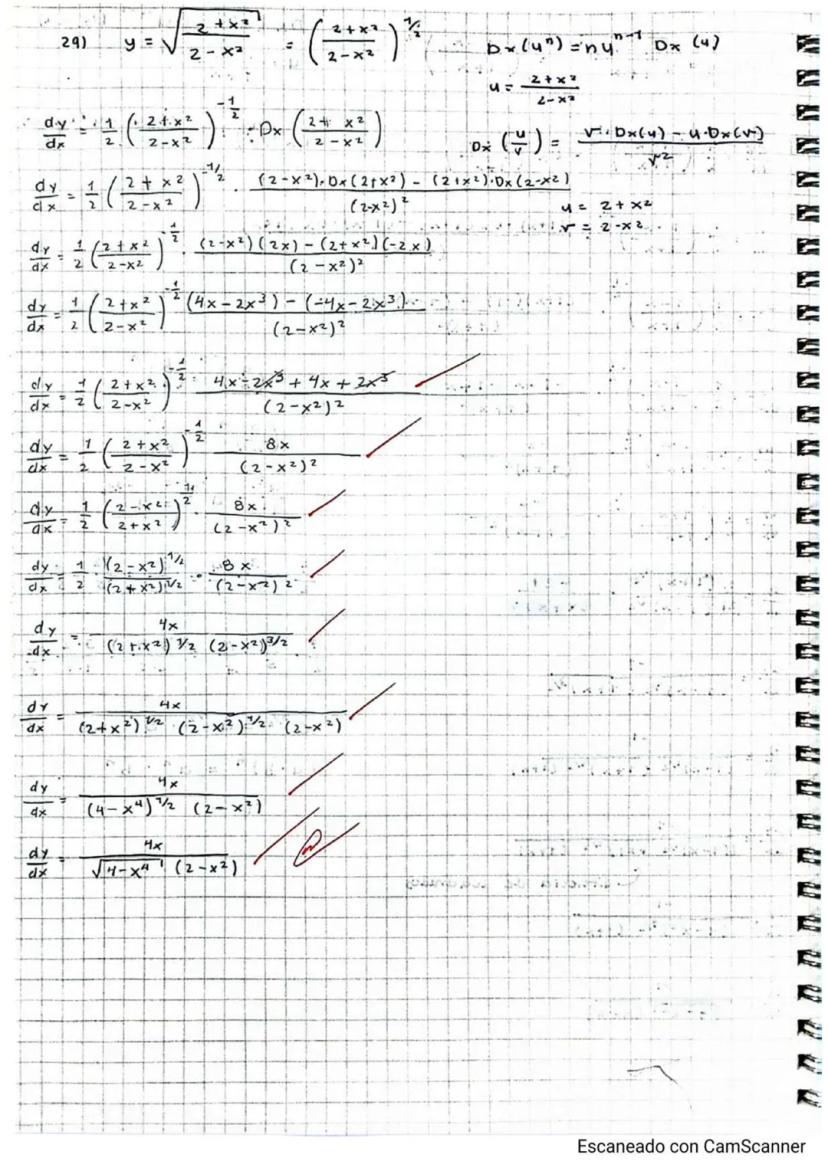 29) y = √((2+x²)/(2-x²)) = ((2+x²)/(2-x²))^(1/2)
Dx(uⁿ) = nu^(n-1) Dx(u)
u = (2+x²)/(2-x²)
dy/dx = 1/2 ((2+x²)/(2-x²))^(-1/2) · Dx ((2+x²)/(2-x²))
Dx (u/v) = (v·Dx(u) - u·Dx(v))/v²
dy/dx = 1/2 ((2+x²)/(2-x²))^(-1/2) · ((2-x²)·Dx(2+x²) - (2+x²)·Dx(2-x²))/(2-x²)²
u = 2+x²
v = 2-x²
dy/dx = 1/2 ((2+x²)/(2-x²))^(-1/2) · ((2-x²)(2x) - (2+x²)(-2x))/(2-x²)²
dy/dx = 1/2 ((2+x²)/(2-x²))^(-1/2) ((4x-2x³) - (-4x-2x³))/(2-x²)²
dy/dx = 1/2 ((2+x²)/(2-x²))^(-1/2) · (4x-2x³+4x+2x³)/(2-x²)²
dy/dx = 1/2 ((2+x²)/(2-x²))^(-1/2) 8x/(2-x²)²
dy/dx = 1/2 ((2-x²)/(2+x²))^(1/2) · 8x/(2-x²)²
dy/dx = 1/2 · (2-x²)^(1/2)/(2+x²)^(1/2) · 8x/(2-x²)²
dy/dx = 4x/((2+x²)^(1/2) (2-x²)^(3/2))
dy/dx = 4x/((2+x²)^(1/2) (2-x²)^(1/2) (2-x²))
dy/dx = 4x/((4-x⁴)^(1/2) (2-x²))
dy/dx = 4x/(√(4-x⁴) (2-x²))
Escaneado con CamScanner